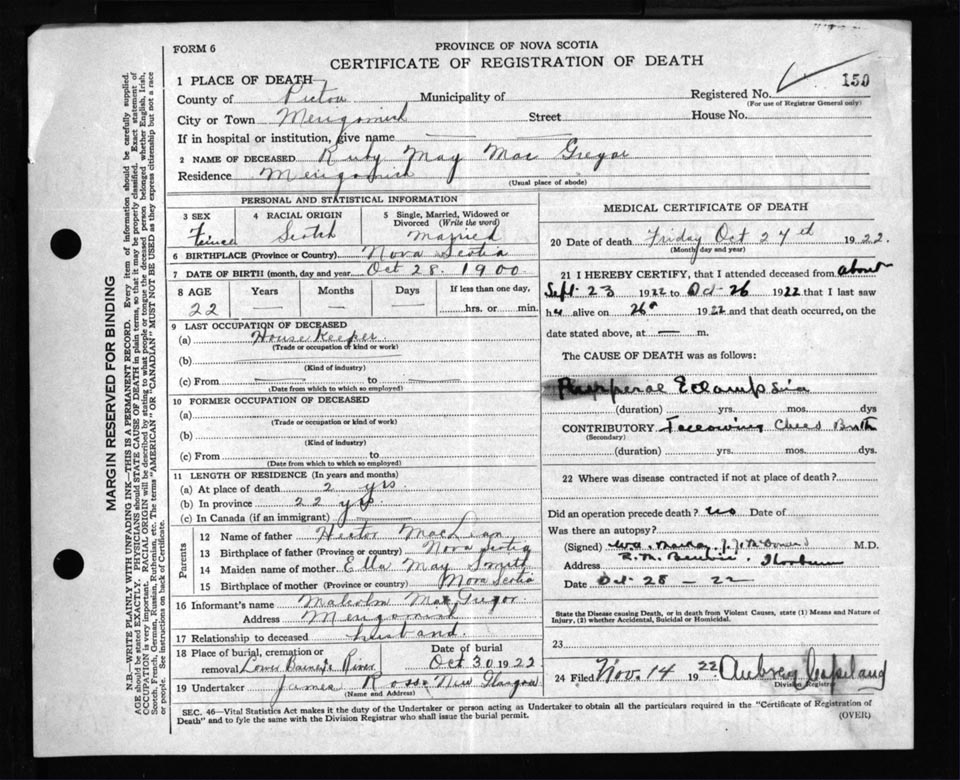 FORM 6
PROVINCE OF NOVA SCOTIA
CERTIFICATE OF REGISTRATION OF DEATH
1 PLACE OF DEATH
Registered No. 150
(For use of Registrar General only)
County of Pictou Municipality of
City or Town Merigomish Street House No.
If in hospital or institution, give name
2 NAME OF DECEASED Ruby May Mac Gregor
Residence Merigomish
(Usual place of abode)
PERSONAL AND STATISTICAL INFORMATION
3 SEX 4 RACIAL ORIGIN 5 Single, Married, Widowed or Divorced (Write the word)
Female Scotch Married
6 BIRTHPLACE (Province or Country) Nova Scotia
7 DATE OF BIRTH (month, day and year) Oct 28. 1900
8 AGE Years Months Days If less than one day,
22 — — — hrs. or min.
9 LAST OCCUPATION OF DECEASED
(a) House Keeper
(Trade or occupation or kind or work)
(b)
(Kind of industry)
(c) From — to —
(Date from which to which so employed)
10 FORMER OCCUPATION OF DECEASED
(a)
(Trade or occupation or kind of work)
(b)
(Kind of industry)
(c) From to
(Date from which to which so employed)
11 LENGTH OF RESIDENCE (In years and months)
(a) At place of death 2 yrs
(b) In province 22 yrs.
(c) In Canada (if an immigrant)
Parents
12 Name of father Hector MacLean
13 Birthplace of father (Province or country) Nova Scotia
14 Maiden name of mother Ella May Smith
15 Birthplace of mother (Province or country) Nova Scotia
16 Informant's name Malcolm MacGregor
Address Merigomish
17 Relationship to deceased husband.
18 Place of burial, cremation or removal Lower Barney's River Date of burial Oct 30, 1922
19 Undertaker James Ross New Glasgow
(Name and Address)
MEDICAL CERTIFICATE OF DEATH
20 Date of death Friday Oct 27th 1922.
(Month, day and year)
21 I HEREBY CERTIFY, that I attended deceased from about
Sept. 23 1922 to Oct-26 1922 that I last saw
her alive on 26th 1922 and that death occurred, on the
date stated above, at — m.
The CAUSE OF DEATH was as follows:
Puerperal Eclampsia
(duration) yrs. mos. dys
CONTRIBUTORY Following Child Birth
(Secondary)
(duration) yrs. mos. dys.
22 Where was disease contracted if not at place of death?
Did an operation precede death? no Date of
Was there an autopsy?
(Signed) M.D.
Address Thorburn
Date Oct-28-22
State the Disease causing Death, or in death from Violent Causes, state (1) Means and Nature of Injury, (2) whether Accidental, Suicidal or Homicidal.
23
24 Filed Nov. 14 1922 Aubrey Copeland
Division Registrar
SEC. 46—Vital Statistics Act makes it the duty of the Undertaker or person acting as Undertaker to obtain all the particulars required in the "Certificate of Registration of Death" and to fyle the same with the Division Registrar who shall issue the burial permit.
(OVER)
MARGIN RESERVED FOR BINDING
N.B.—WRITE PLAINLY WITH UNFADING INK—THIS IS A PERMANENT RECORD. Every item of information should be carefully supplied.
AGE should be stated EXACTLY. PHYSICIANS should STATE CAUSE OF DEATH in plain terms, so that it may be properly classified. Exact statement of
OCCUPATION is very important. RACIAL ORIGIN will be described by stating to what people or tongue the deceased person belonged whether English, Irish,
Scotch, French, German, Russian, Ruthenian, etc. The terms "AMERICAN" OR "CANADIAN" MUST NOT BE USED as they express citizenship but not a race
or people. See instructions on back of Certificate.